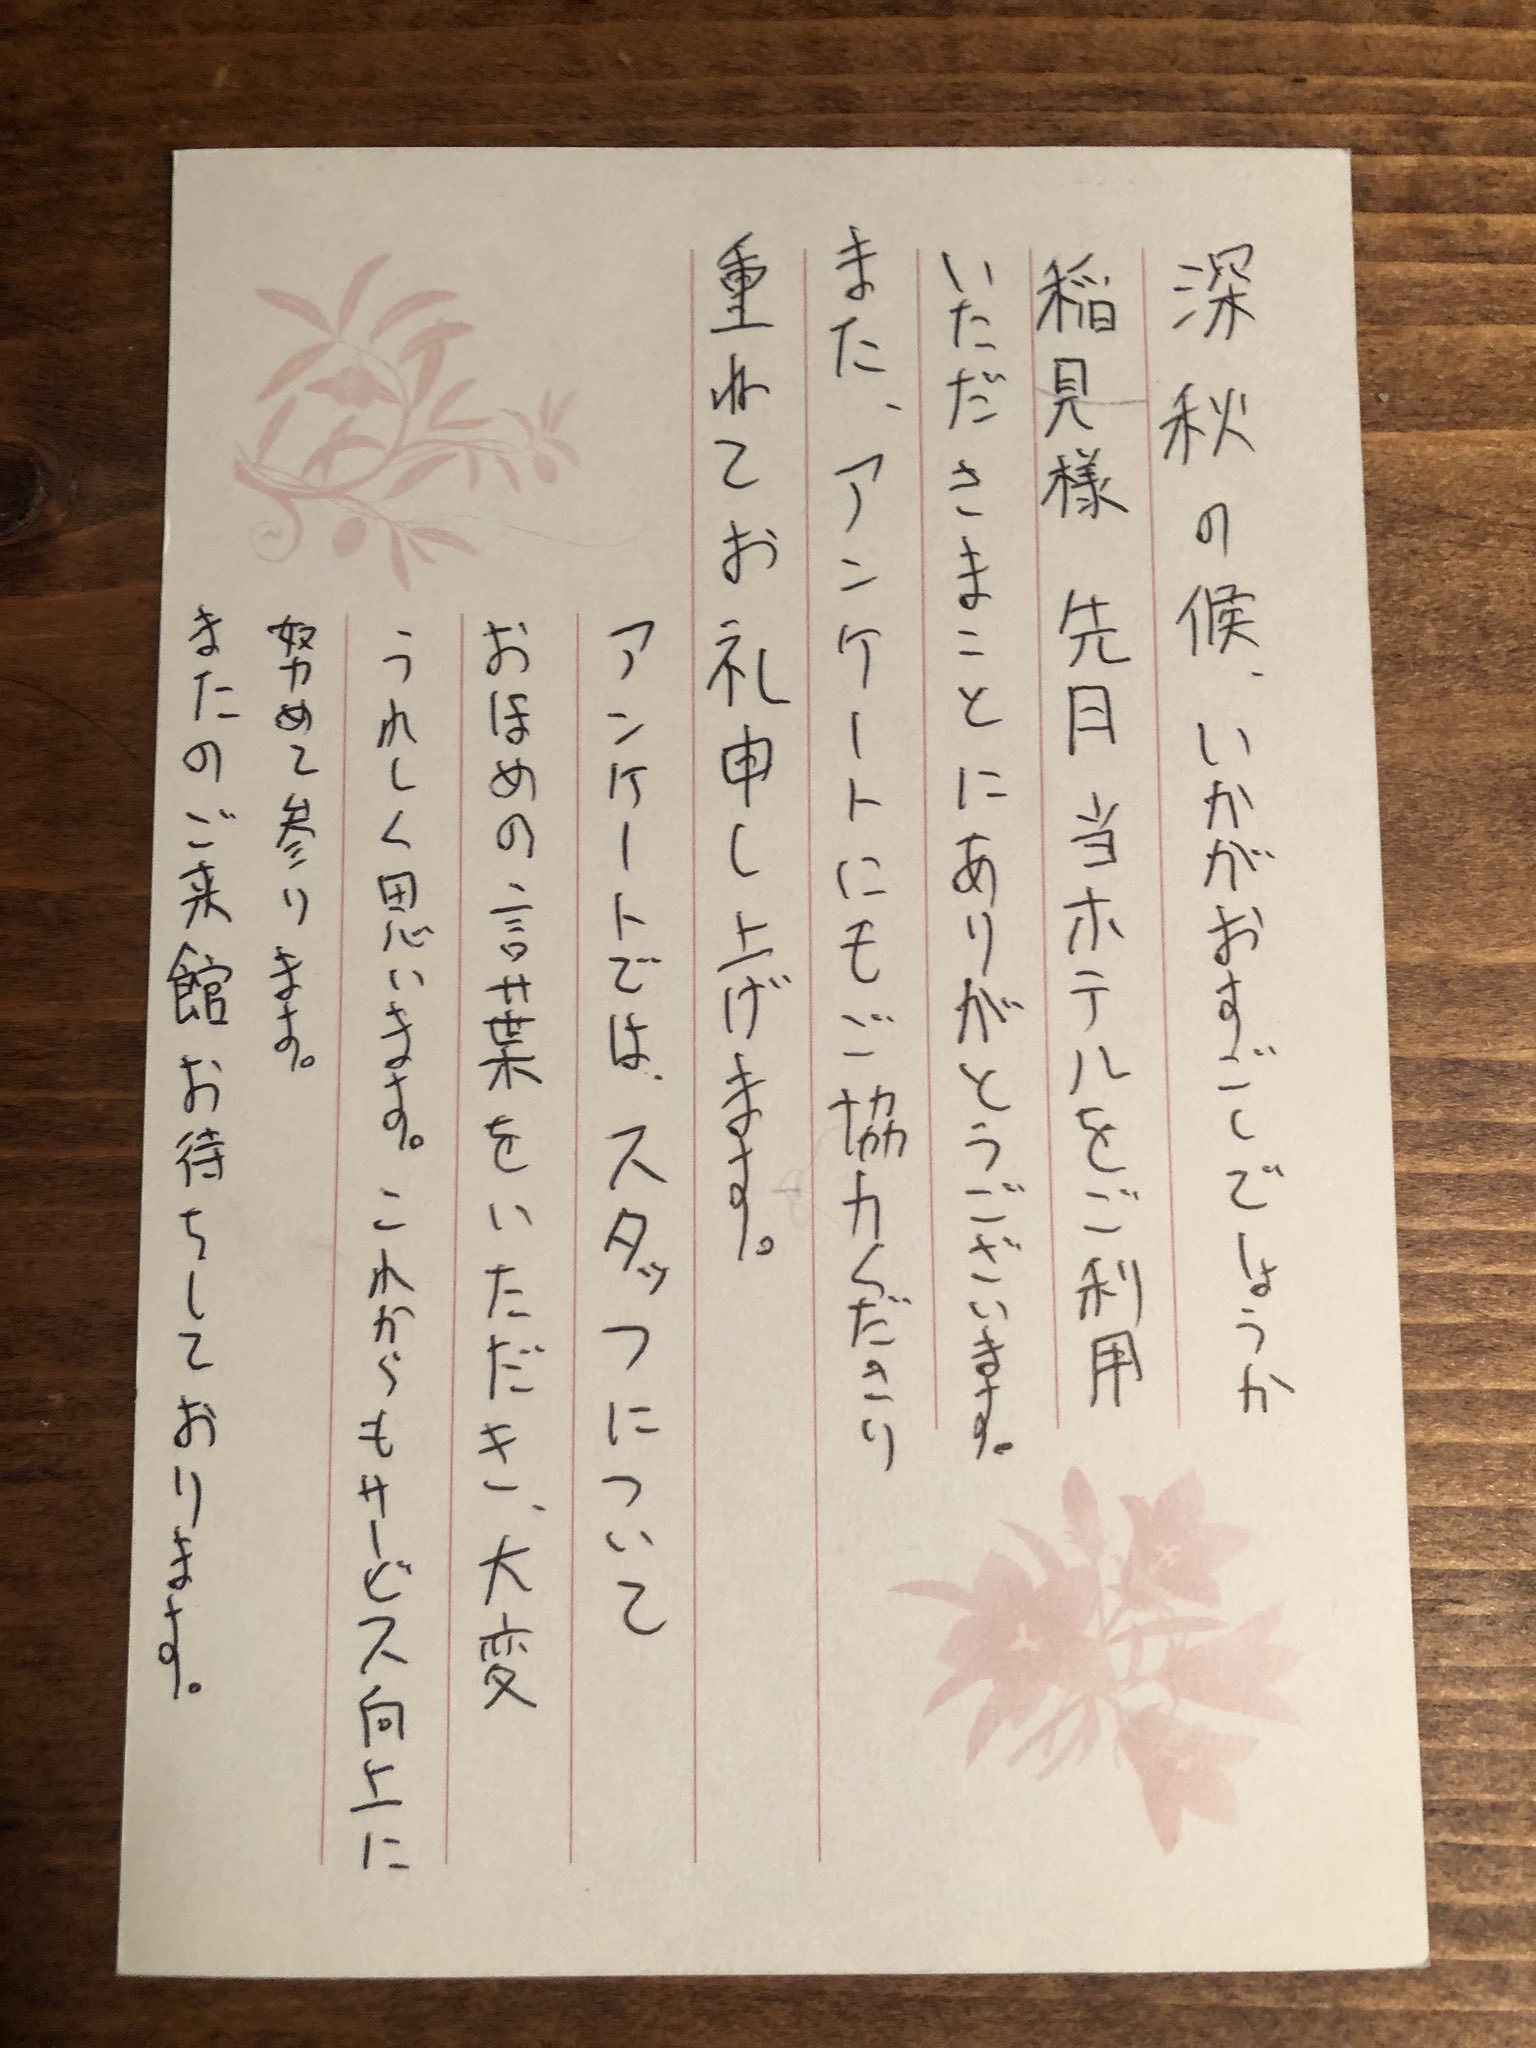 深秋の候、いかがおすごしでしょうか
稲見様 先日当ホテルをご利用
いただきまことにありがとうございます。
また、アンケートにもご協力くださり
重ねてお礼申し上げます。
アンケートでは、スタッフについて
おほめの言葉をいただき、大変
うれしく思います。これからもサービス向上に
努めて参ります。
またのご来館お待ちしております。